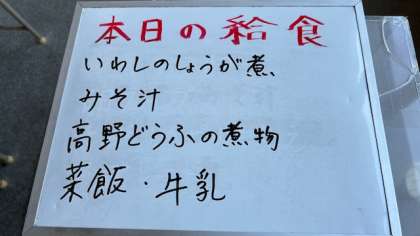 本日の給食
いわしのしょうが煮
みそ汁
高野どうふの煮物
菜飯・牛乳